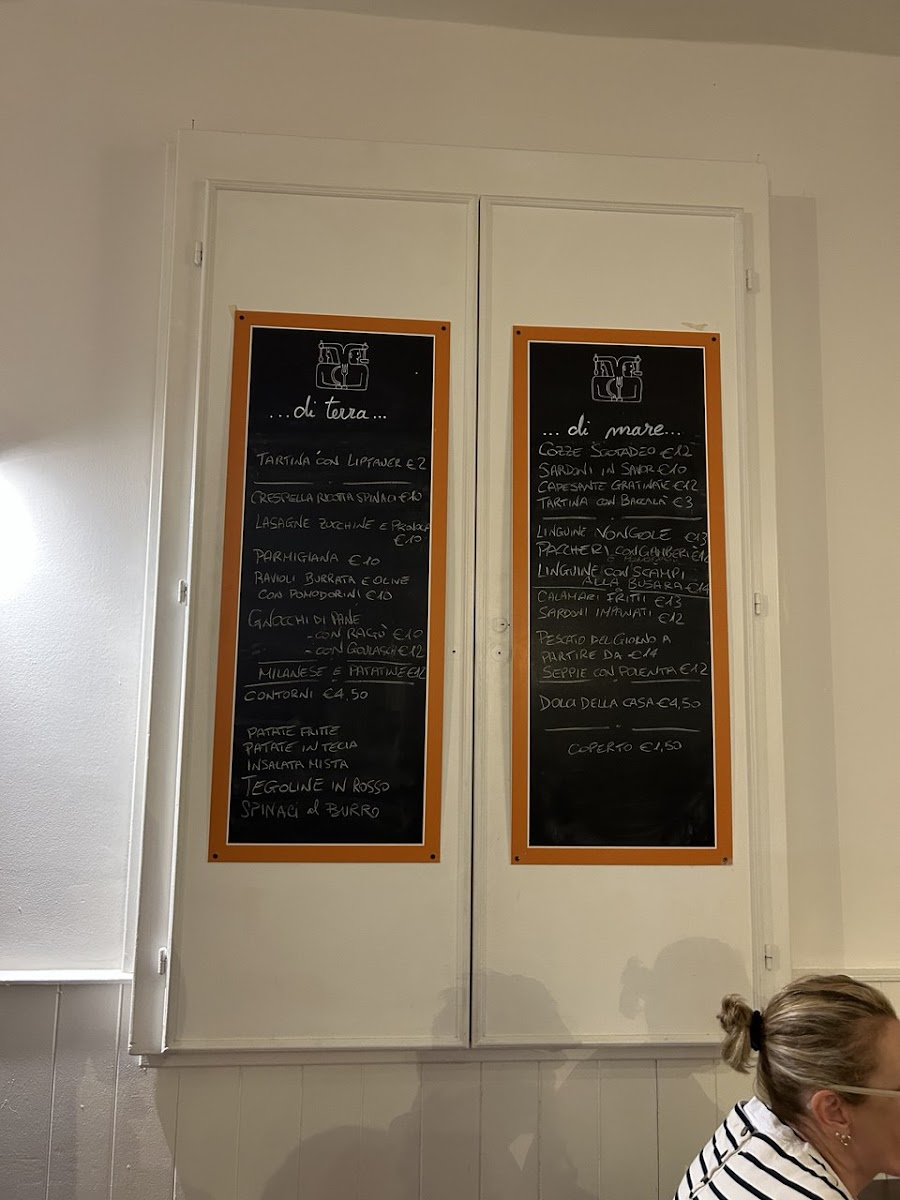 ...di terra...
TARTINA CON LIPTAUER €2
CRESPELLA RICOTTA SPINACI €10
LASAGNE ZUCCHINE E PROVOLA
€10
PARMIGIANA €10
RAVIOLI BURRATA E OLIVE
CON POMODORINI €10
GNOCCHI DI PANE
- CON RAGÙ €10
- CON GOULASCH €12
MILANESE E PATATINE €12
CONTORNI €4,50
PATATE FRITTE
PATATE IN TECIA
INSALATA MISTA
TEGOLINE IN ROSSO
SPINACI al BURRO
... di mare...
COZZE SCOTADEO €12
SARDONI IN SAVOR €10
CAPESANTE GRATINATE €12
TARTINA CON BACCALÀ €3
LINGUINE VONGOLE €13
PACCHERI CON GAMBERI
LINGUINE CON SCAMPI
ALLA BUSARA €14
CALAMARI FRITTI €13
SARDONI IMPANATI
€12
PESCATO DEL GIORNO A
PARTIRE DA €14
SEPPIE CON POLENTA €12
DOLCI DELLA CASA €4,50
COPERTO €1,50